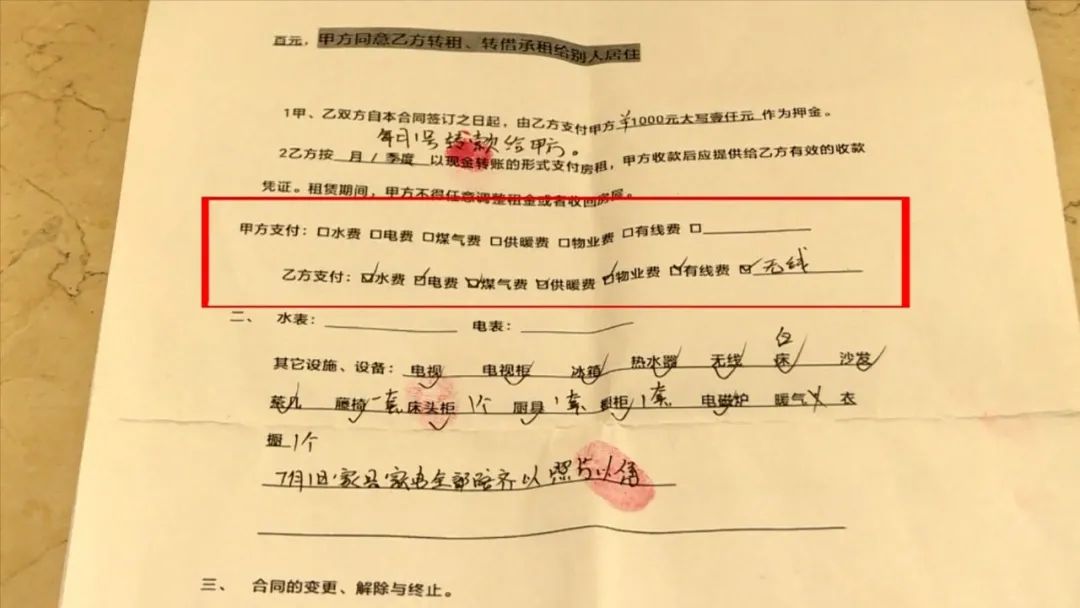 百元，甲方同意乙方转租、转借承租给别人居住
1甲、乙双方自本合同签订之日起，由乙方支付甲方¥1000元大写壹仟元 作为押金。
每月1号转款给甲方。
2乙方按 月/季度 以现金转账的形式支付房租，甲方收款后应提供给乙方有效的收款
凭证。租赁期间，甲方不得任意调整租金或者收回房屋。
甲方支付：□水费 □电费 □煤气费 □供暖费 □物业费 □有线费 □
乙方支付：☑水费 ☑电费 ☑煤气费 ☑供暖费 ☑物业费 ☑有线费 ☑无线
二、 水表： 电表：
其它设施、设备：电视✓ 电视柜✓ 冰箱✓ 热水器✓ 无线✓ 床✓ 沙发✓
茶几 藤椅一套 床头柜✓ 1个 厨具✓ 1套 橱柜✓ 1套 电磁炉✓ 暖气✓ 衣
橱 1个
7月1日家具家电全部 齐以照片以
三、 合同的变更、解除与终止。